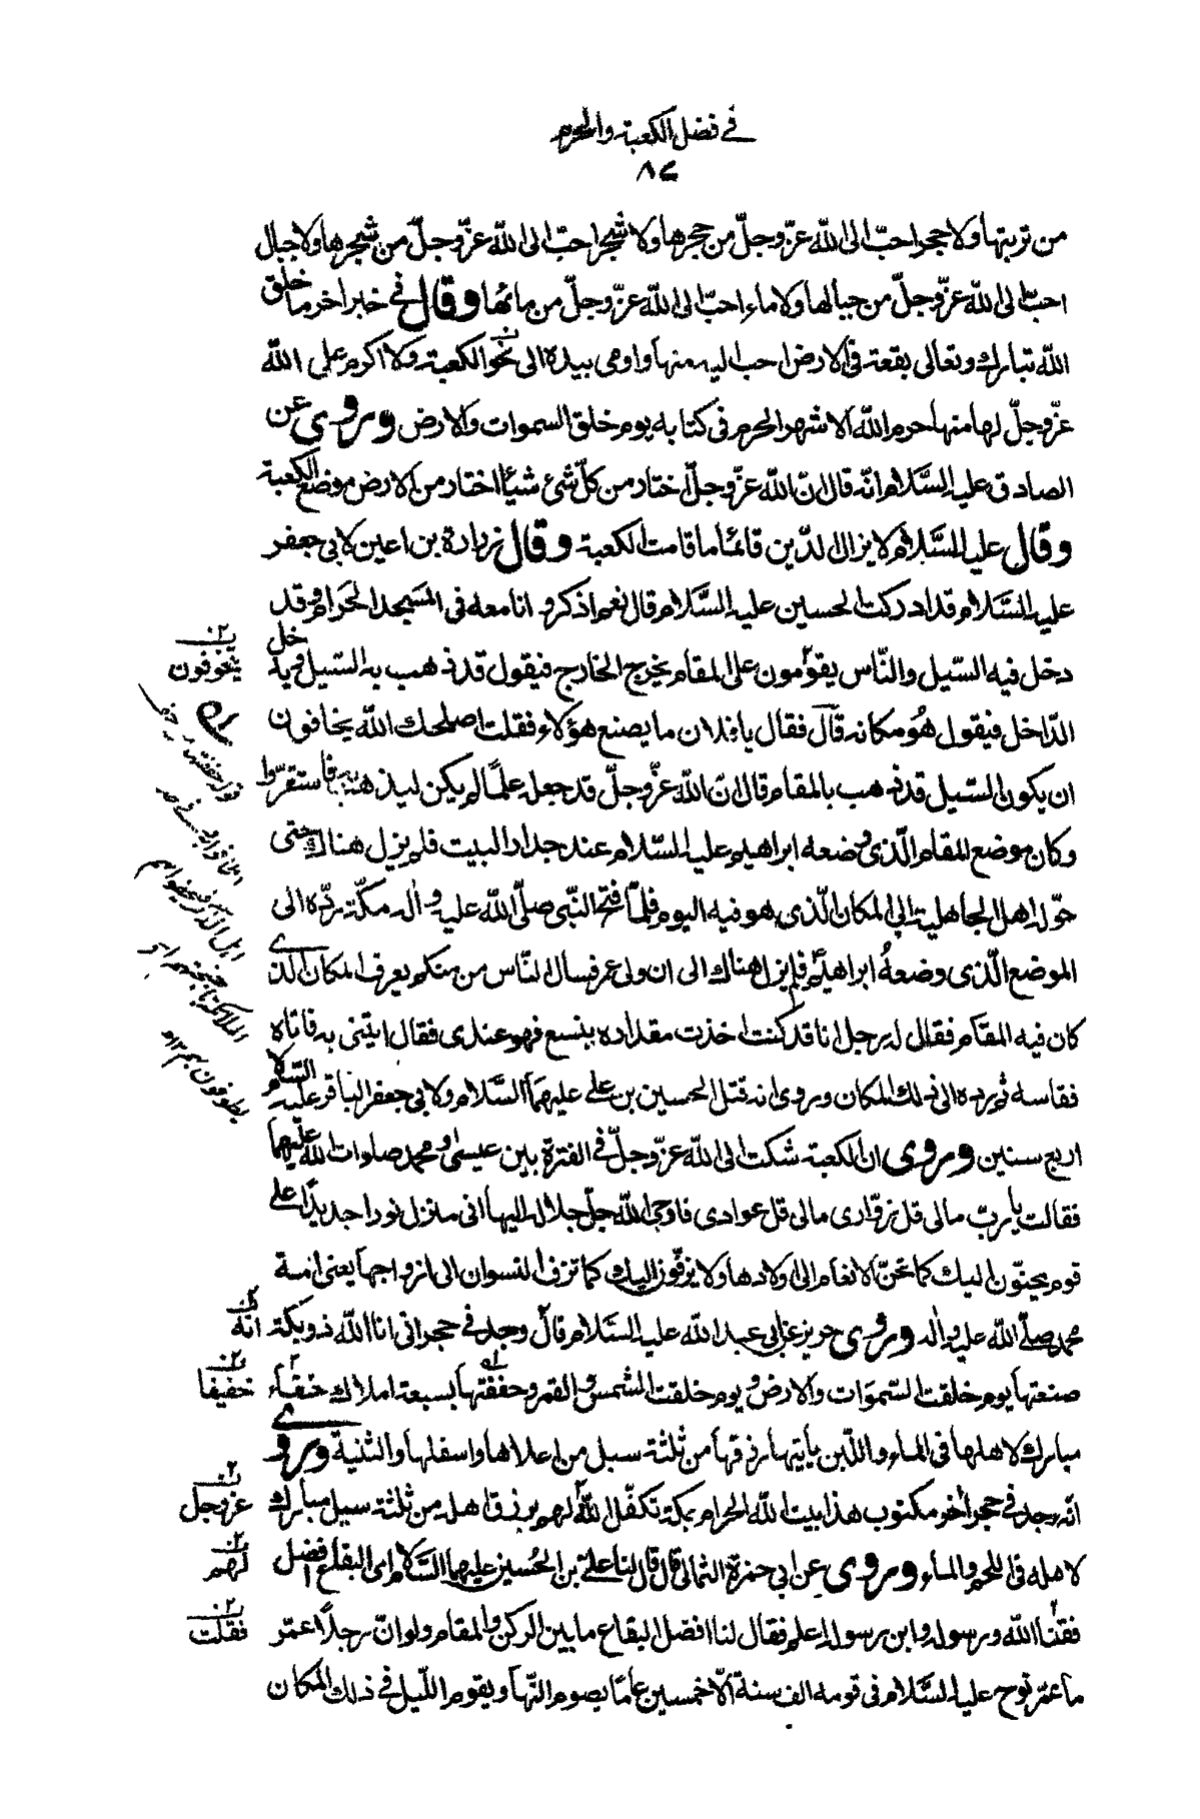 في فضل الكعبة والحرم
٨٤
من تربتها ولا حجر احبّ الى اللّه عزّ وجلّ من حجرها ولا شجر احبّ الى اللّه عزّ وجلّ من شجرها ولا جبال
احبّ الى اللّه عزّ وجلّ من جبالها ولا ماء احبّ الى اللّه عزّ وجلّ من مائها وقال في خبر اخر ما خلق
اللّه تبارك وتعالى بقعة في الارض احب اليه منها واومى بيده الى نحو الكعبة ولا اكرم على اللّه
عزّ وجلّ لها منها حرم اللّه الاشهر الحرم في كتابه يوم خلق السموات والارض وروى عن
الصادق عليه السَّلام انّه قال انّ اللّه عزّ وجلّ اختار من كلّ شئ شيئًا اختار من الارض موضع الكعبة
وقال عليه السَّلام لا يزال الدّين قائمًا ما قامت الكعبة وقال زرارة بن اعين لابي جعفر
عليه السَّلام قد ادركت الحسين عليه السَّلام قال نعم اذكر و انا معه في المسَجد الحَرام وقد
دخل فيه السّيل والنّاس يقومون على المقام يخرج الخارج فيقول قد ذهب به السّيل ويدخل
يتخوّفون
الدّاخل فيقول هُو مكانه قال فقال يا فلان ما يصنع هؤلاء فقلت اصلحك اللّه يخافون
ان يكون السّيل قد ذهب بالمقام قال انّ اللّه عزّ وجلّ قد جعله علمًا لم يكن ليذهب به فاستقرّوا
وكان موضع المقام الّذى وضعه ابراهيم عليه السّلام عند جدار البيت فلم يزل هناك حتى
حوّله اهل الجاهلية الى المكان الّذى هو فيه اليوم فلمّا فتح النبّى صلّى اللّه عليه و اله مكّة ردّه الى
الموضع الّذى وضعهُ ابراهيم فلم يزل هناك الى ان ولى عمر فسال النّاس من منكم يعرف المكان الذى
كان فيه المقام فقال له رجل انا قد كنت اخذت مقداره بنسع فهو عندى فقال ايتنى به فاتاه
فقاسه ثم ردّه الى ذلك المكان وروى انه قتل الحسين بن على عليهمَا السَّلام ولابى جعفر الباقر عليه السّلام
اربع سنين وروى ان الكعبة شكت الى اللّه عزّ وجلّ في الفترة بين عيسى و محمد صلوات اللّه عليهما
فقالت يا ربّ مالى قل زوّارى مالى قل عوادى فاوحى اللّه جلّ جلاله اليها انى منزل نورا جديدًا على
قوم يحنّون اليك كما تحنّ الانعام الى اولادها ولا يزفّون اليك كما تزف النسوان الى ازواجها يعنى امة
محمد صلّى اللّه عليه واله وروى حريز عن ابى عبد اللّه عليه السَّلام قال وجد في حجر انى انا اللّه ذو بكة
انّه
صنعتها يوم خلقت السّموَات والارض و يوم خلقت الشمس والقمر وحففتها بسبعة املاك حنفاء
خفيفا
مبارك لاهلها في الماء واللّبن ياتيها رزقها من ثلثة سبل من اعلاها واسفلها والثنية وروى
انّه وجد في حجر اخر مكتوب هذا بيت اللّه الحرام بمكة تكفّل اللّه لهم برزق اهله من ثلثة سبل مبارك
عزّ وجل
لاهله في اللحم والماء وروى عن ابى حمزة الثمالى قال قال لنا علىّ بن الحُسين عليهما السَّلام اى البقاع افضل
لهم
فقلنا اللّه ورسوله وابن رسوله اعلم فقال لنا افضل البقاع ما بين الركن والمقام ولو انّ رجلًا عمّر
فقلت
ما عمّر نوح عليه السَّلام في قومه الف سنة الّا خمسين عامًا يصوم النّهار ويقوم اللّيل في ذلك المكان